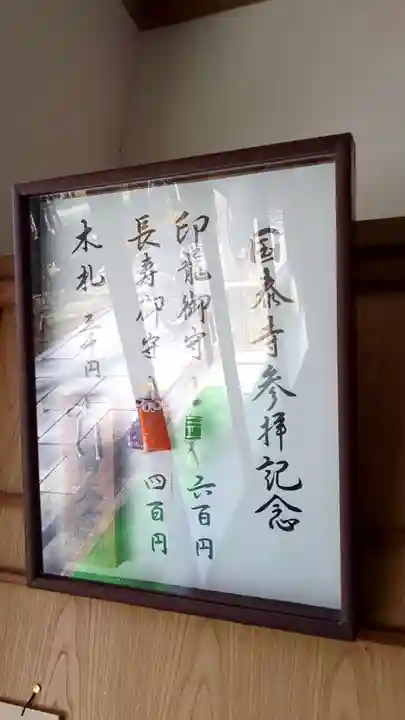 国泰寺参拝記念
印龍御守 六百円
長寿御守 四百円
木札 三千円